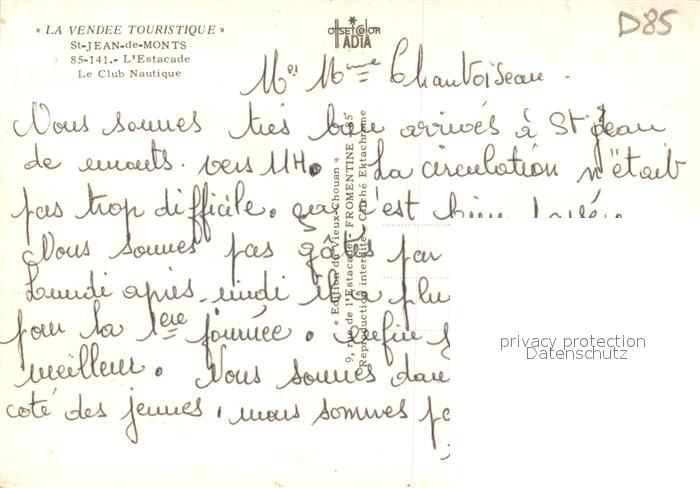 « LA VENDEE TOURISTIQUE »
St-JEAN-de-MONTS
85-141.- L'Estacade
Le Club Nautique
OffsetColor
IADIA
D85
Mr. Mme Chantoiseau.
Nous sommes très bien arrivés à St Jean
de monts. vers 11H. La circulation n'était
pas trop difficile. ça s'est bien passé.
Nous sommes pas gatés par
Lundi après-midi il a plu
pour la 1ère journée. enfin
meilleur. Nous sommes dans
coté des jeunes, mais sommes
« Edition du Vieux-Chouan »
9, rue de l'Estacade - FROMENTINE 85
Reproduction interdite - Cliché Ektachrome
privacy protection
Datenschutz